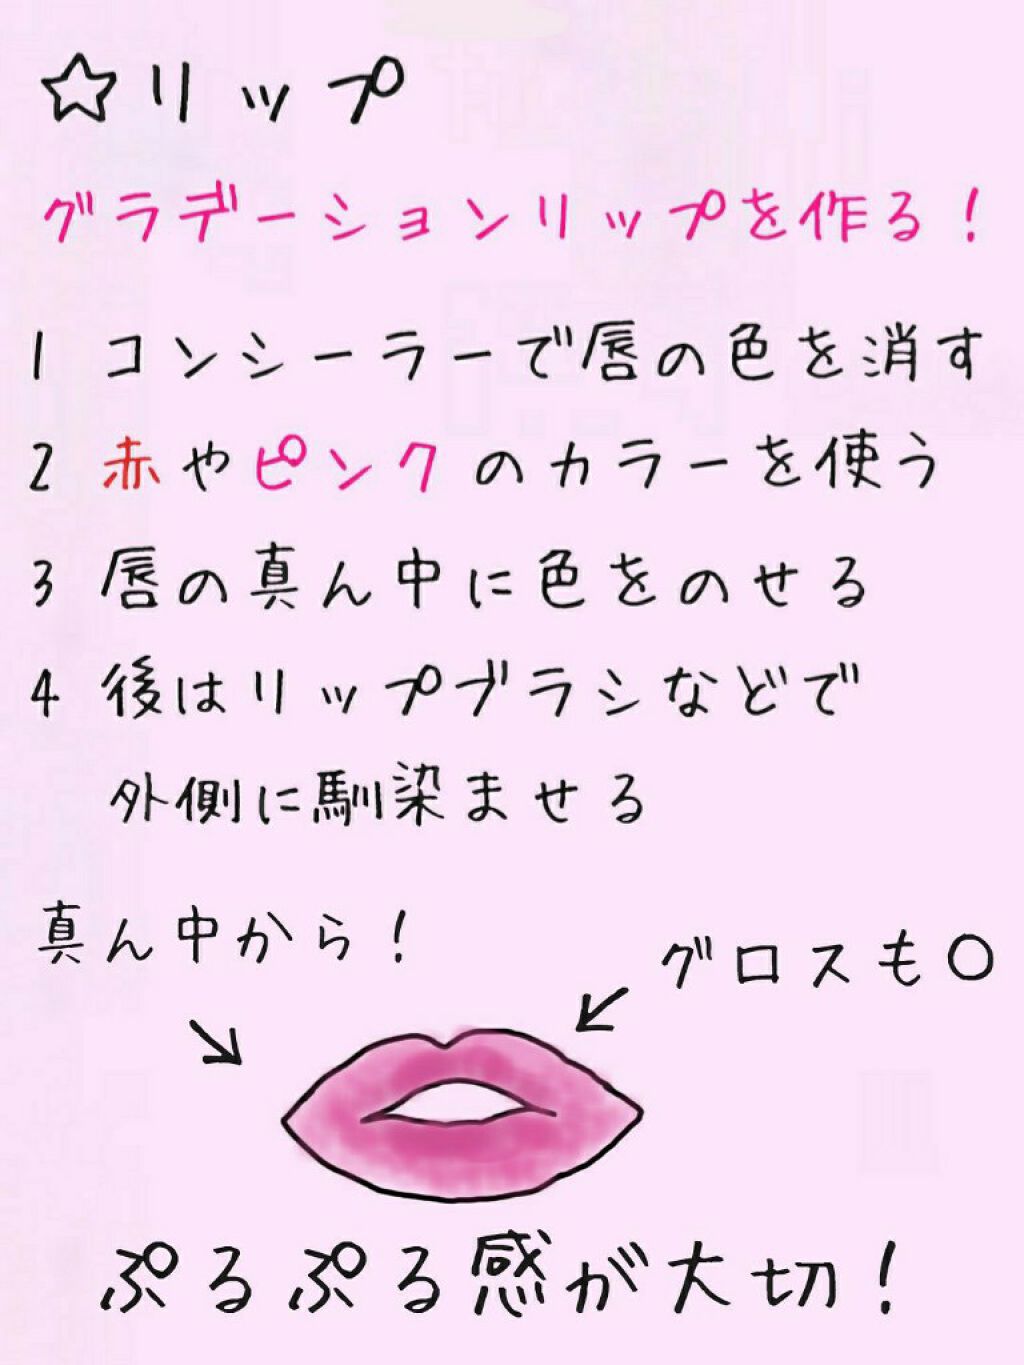 ☆リップ
グラデーションリップを作る!
1 コンシーラーで唇の色を消す
2 赤やピンクのカラーを使う
3 唇の真ん中に色をのせる
4 後はリップブラシなどで
外側に馴染ませる
真ん中から!
グロスも○
ぷるぷる感が大切!